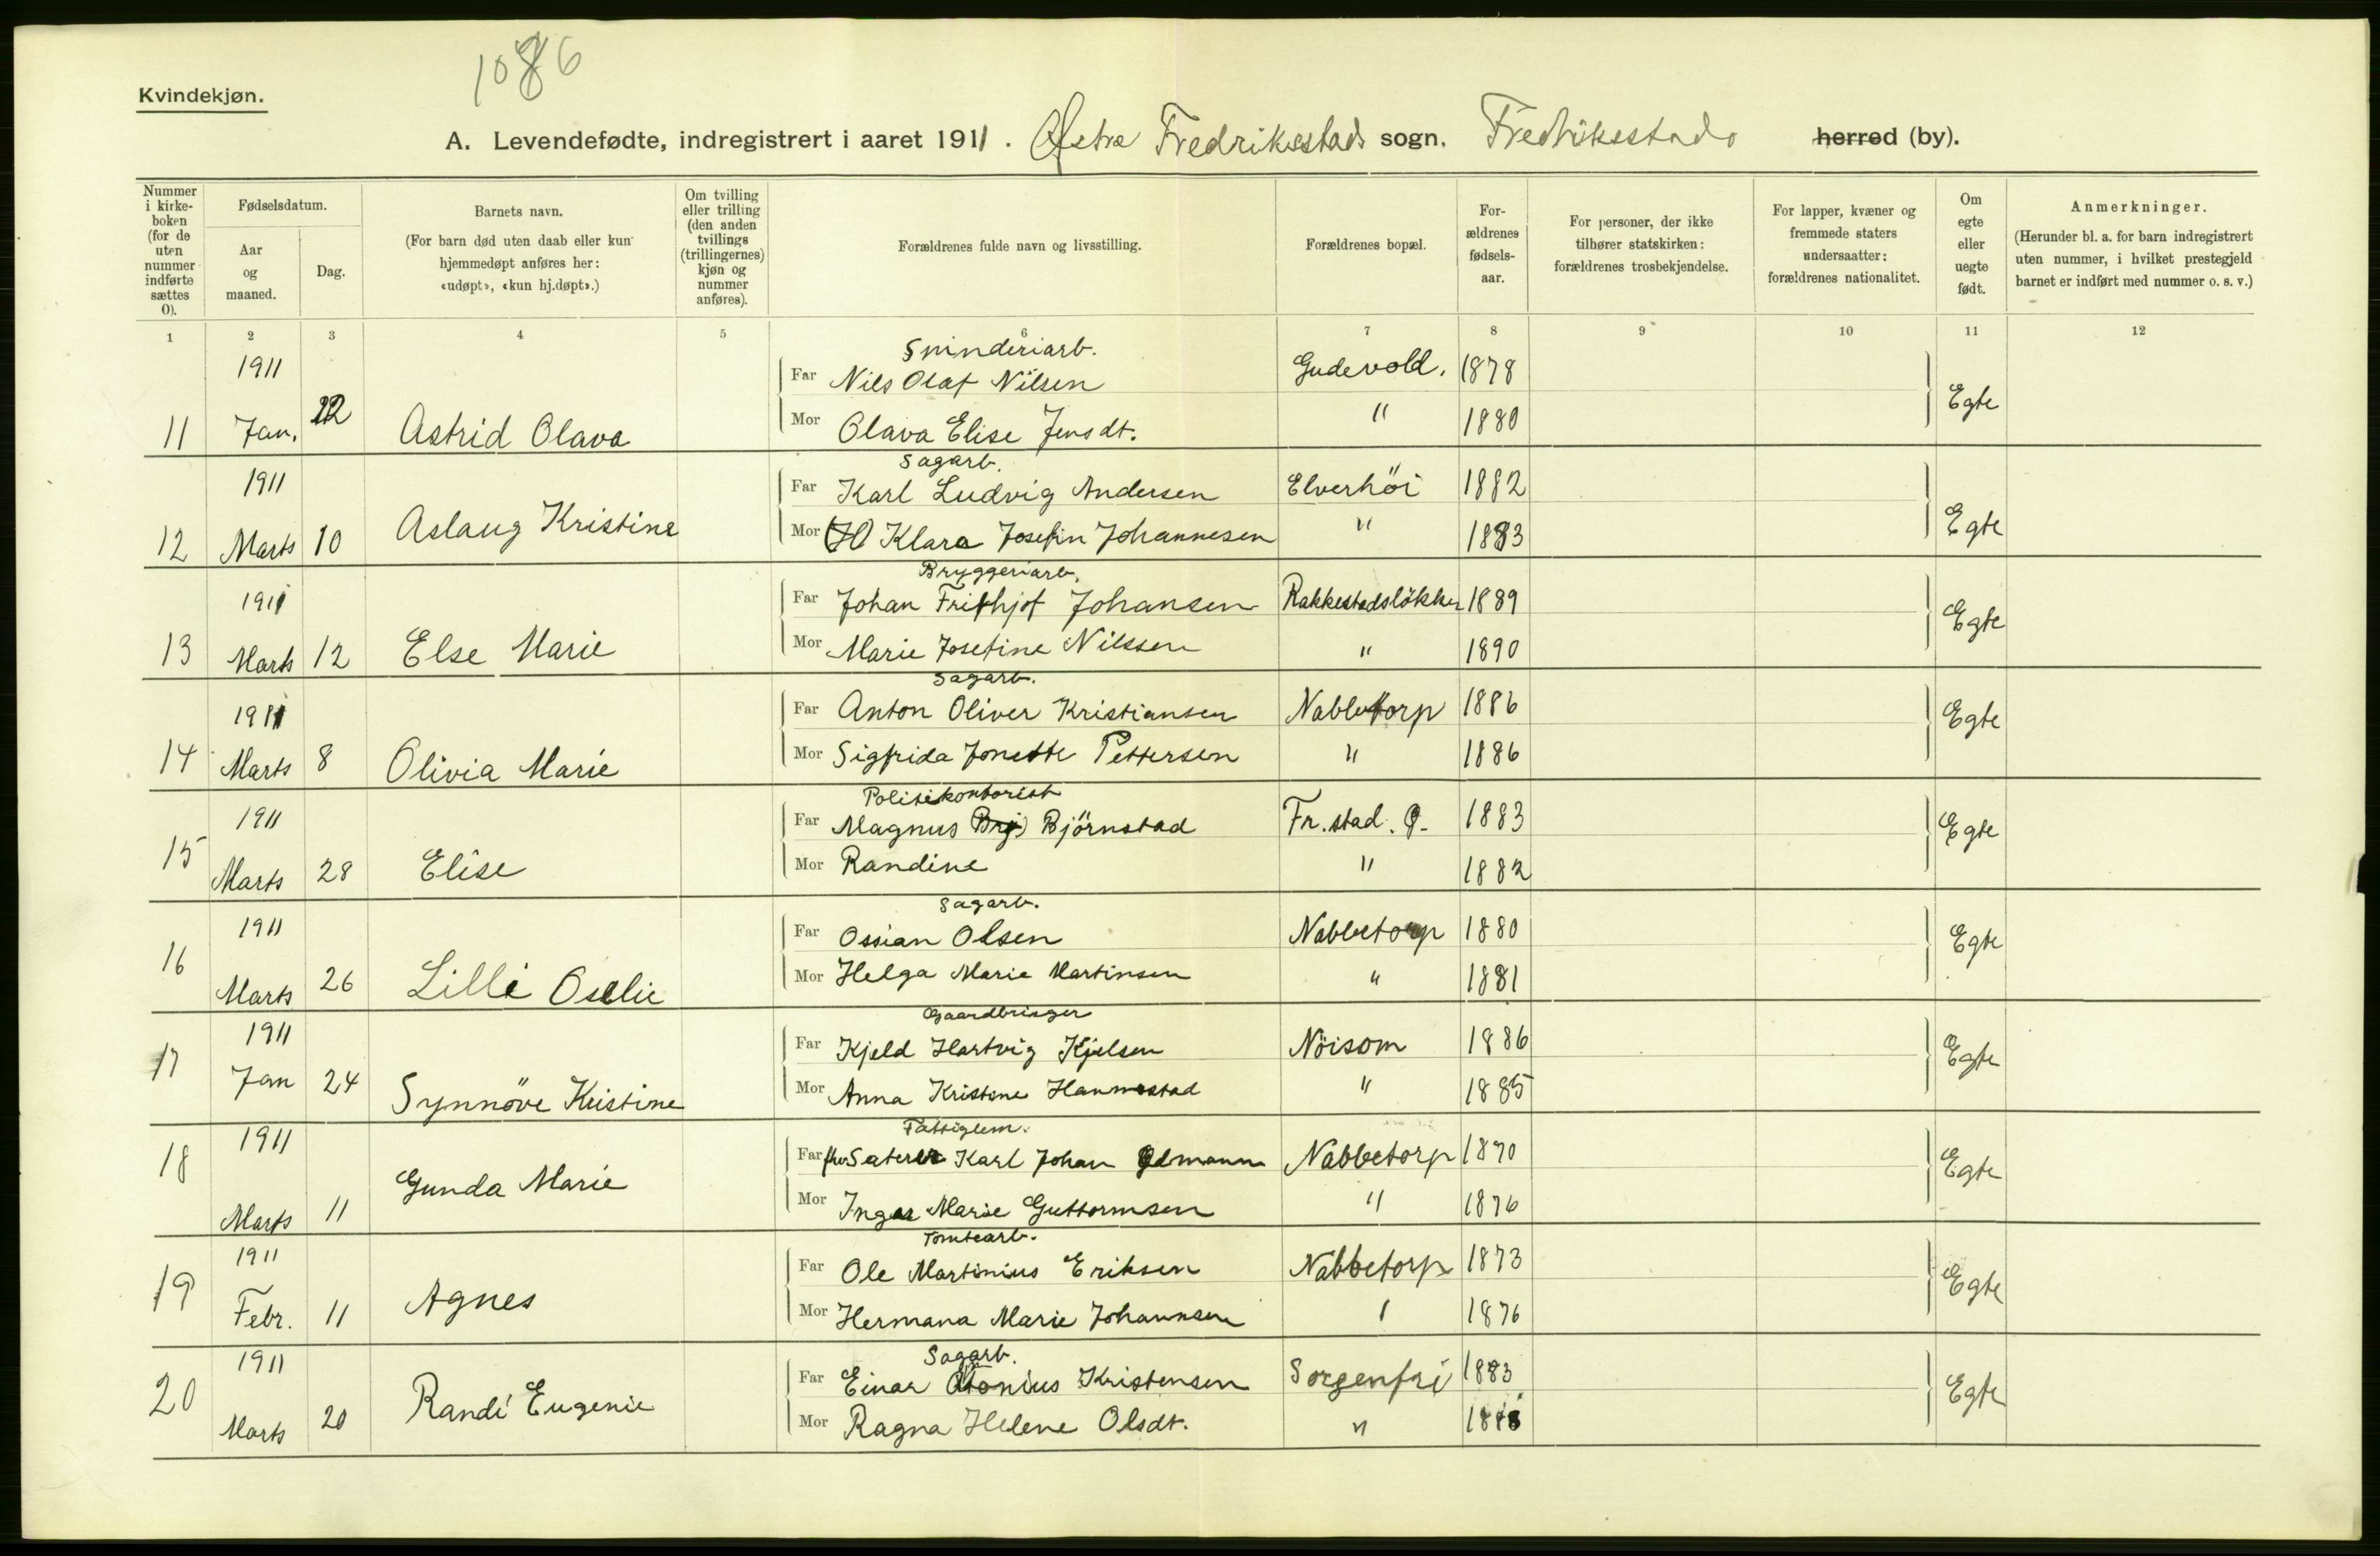 1086
Kvindekjøn.
A. Levendefødte, indregistrert i aaret 1911. Østre Fredriksstads sogn. Fredriksstads herred (by).
Nummer i kirke-boken (for de uten nummer indførte sættes 0).
Fødselsdatum.
Aar og maaned.
Dag.
Barnets navn.
(For barn død uten daab eller kun hjemmedøpt anføres her: «udøpt», «kun hj.døpt».)
Om tvilling eller trilling (den anden tvillings (trillingernes) kjøn og nummer anføres).
Forældrenes fulde navn og livsstilling.
Forældrenes bopæl.
For-ældrenes fødsels-aar.
For personer, der ikke tilhører statskirken: forældrenes trosbekjendelse.
For lapper, kvæner og fremmede staters undersaatter: forældrenes nationalitet.
Om egte eller uegte født.
Anmerkninger.
(Herunder bl. a. for barn indregistrert uten nummer, i hvilket prestegjeld barnet er indført med nummer o. s. v.)
1 2 3 4 5 6 7 8 9 10 11 12
Spinderiarb.
1911 Far Nils Olaf Nilsen Gudevold. 1878
11 Jan. 22 Astrid Olava Mor Olava Elise Jensdt. " 1880 Egte
Sagarb.
1911 Far Karl Ludvig Andersen Elverhöi 1882
12 Marts 10 Aslaug Kristine Mor Klara Josefin Johannesen " 1883 Egte
Bryggeriarb.
1911 Far Johan Frithjof Johansen Rakkestadsløkken 1889
13 Marts 12 Else Marie Mor Marie Josefine Nilssen " 1890 Egte
Sagarb.
1911 Far Anton Oliver Kristiansen Nabbetorp 1886
14 Marts 8 Olivia Marie Mor Sigfrida Jonette Pettersen " 1886 Egte
Politikontorist
1911 Far Magnus Björnstad Fr.stad. Ø. 1883
15 Marts 28 Elise Mor Randine " 1882 Egte
Sagarb.
1911 Far Ossian Olsen Nabbetorp 1880
16 Marts 26 Lilli Oselie Mor Helga Marie Martinsen " 1881 Egte
Gaardbruger
1911 Far Kjeld Hartvig Kjelsen Nöisom 1886
17 Jan 24 Synnöve Kristine Mor Anna Kristine Hannestad " 1885 Egte
Fattiglem.
1911 Far Karl Johan Nabbetorp 1870
18 Marts 11 Gunda Marie Mor Inga Marie Guttormsen " 1876 Egte
Tomtearb.
1911 Far Ole Martinius Eriksen Nabbetorp 1873
19 Febr. 11 Agnes Mor Hermana Marie Johannsen " 1876 Egte
Sagarb.
1911 Far Einar Kristensen Sorgenfri 1883
20 Marts 20 Randi Eugenie Mor Ragna Helene Olsdt. " Egte